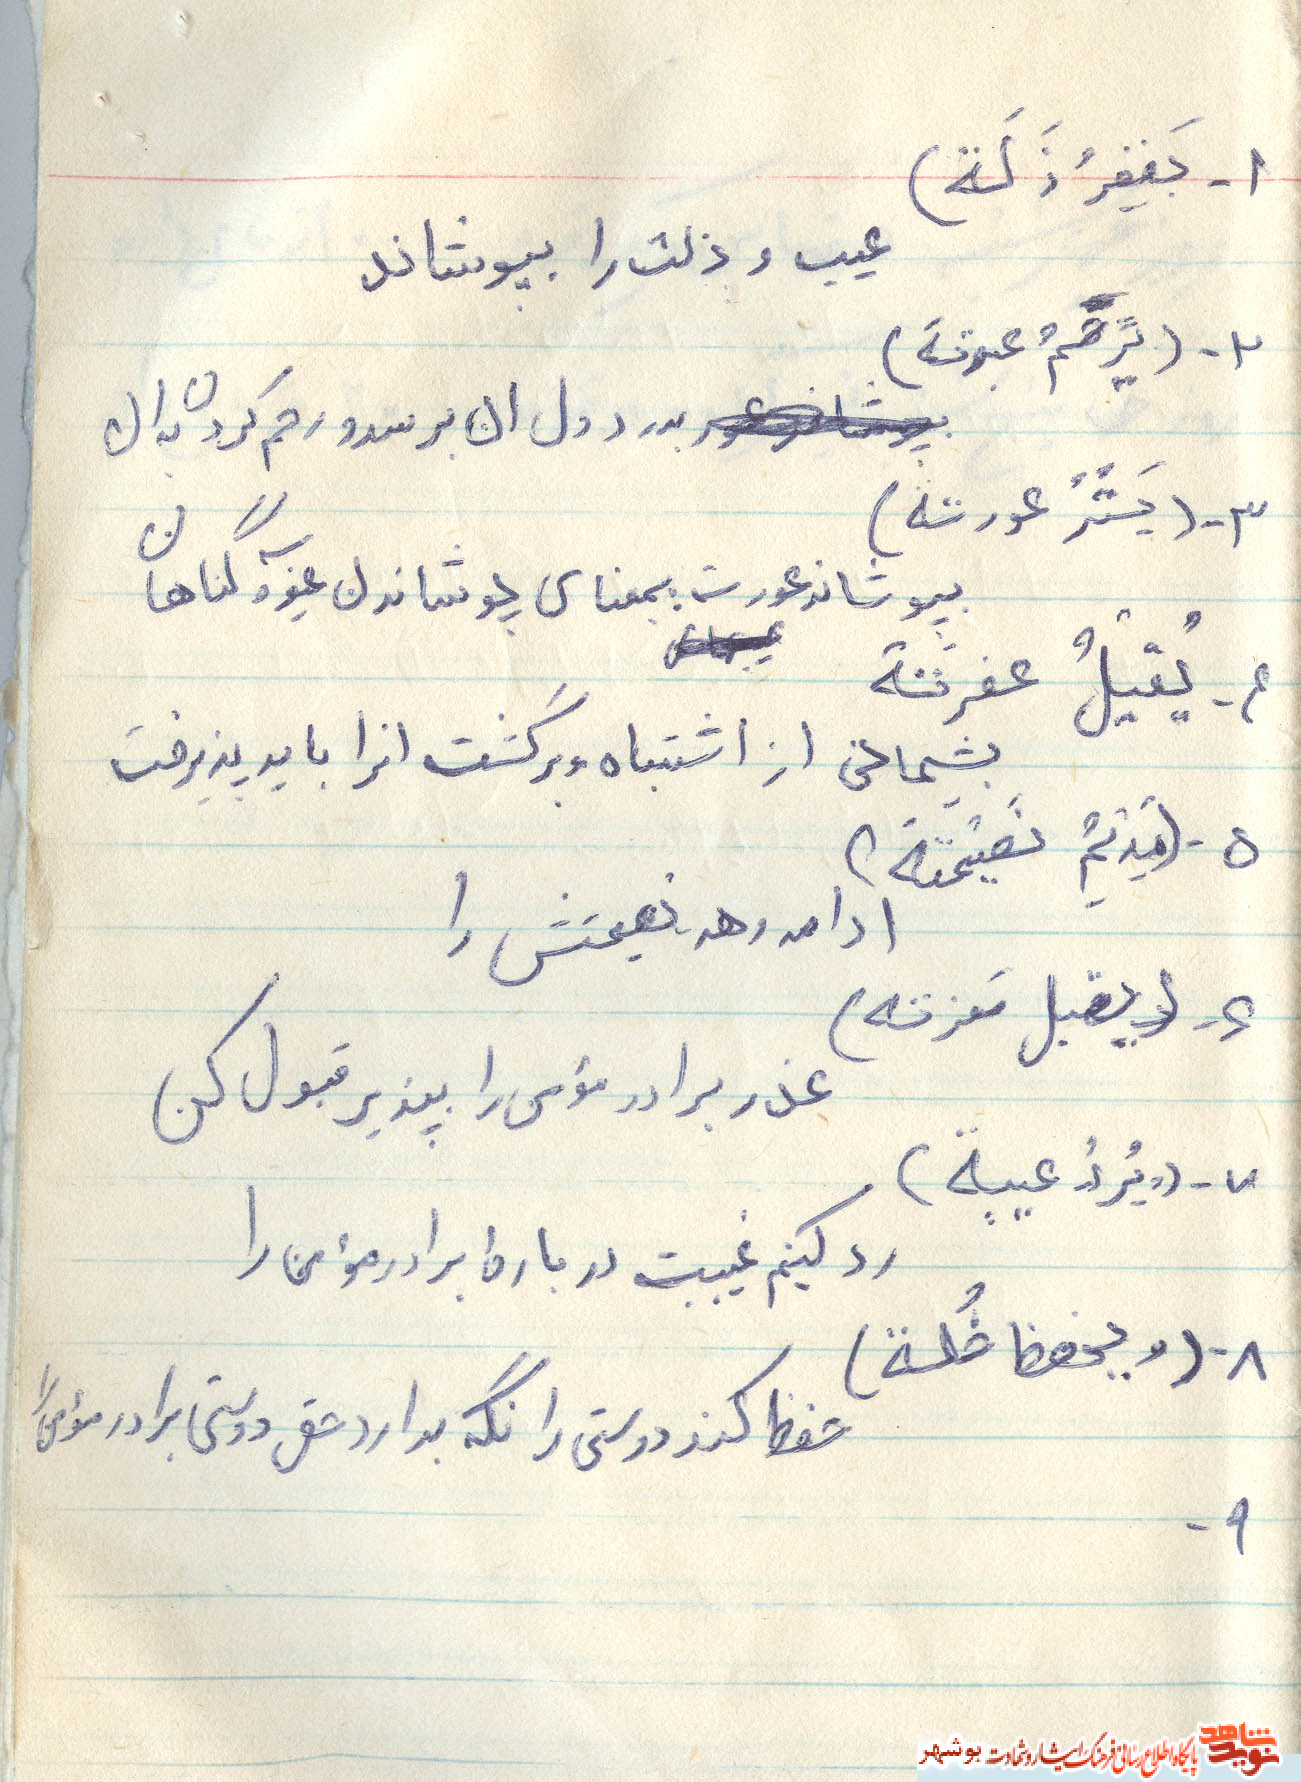 ۱- یَغفِرُ ذَلَتة)
عیب و ذلت را بپوشاند
۲- (یَرحَمُ عبرتة)
بدرد دل ان برسد و رحم کردن به ان
۳- (یَستُرُ عورتة)
بپوشاند عورت بمعنای پوشاندن عیوب گناهان
۴- یُقیلُ عفرتة
پشیمانی از اشتباه و برگشت انرا باید پذیرفت
۵- (یَدیمُ نَصیحَتة)
ادامه دهد نصیحتش را
۶- (و یقبل معزرته)
عذر برادر مؤمن را بپذیر قبول کن
۷- (و یُردُ عیبة)
رد کینم غیبت درباره برادر مؤمن را
۸- (و یحفظ خُلتة)
حفظ کند دوستی را نگه بدارد حق دوستی برادر مؤمن را
۹-
نوید شاهد
پایگاه اطلاع رسانی فرهنگ ایثار و شهادت بوشهر